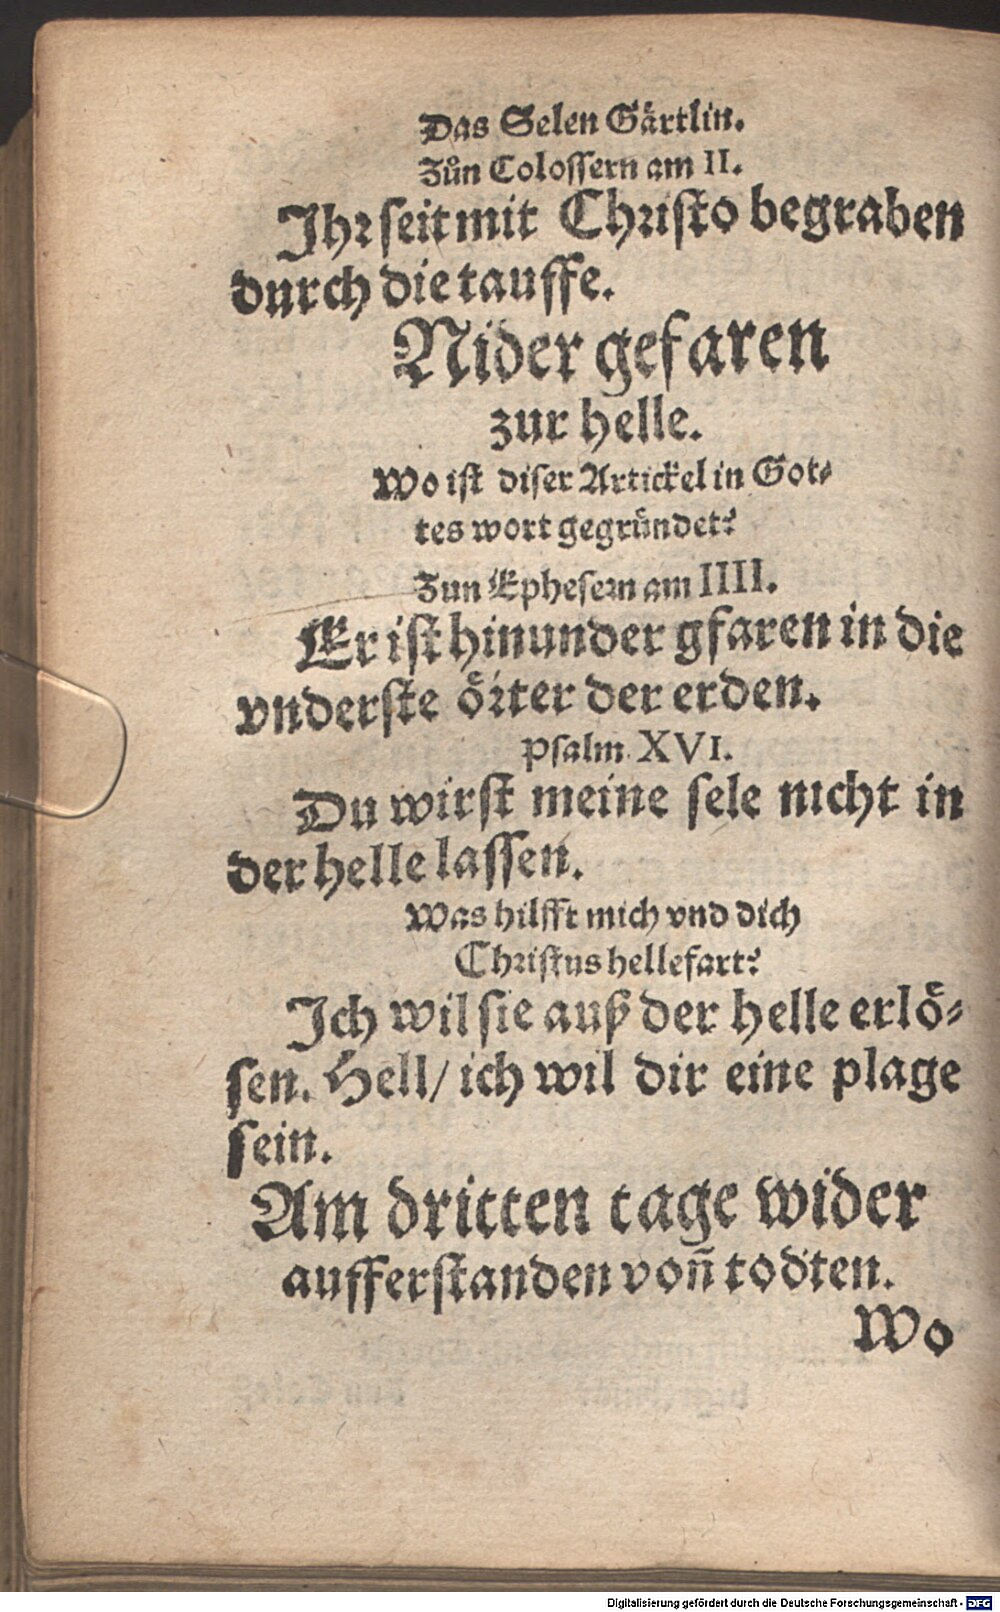 Das Selen Gärtlin.
Zůn Colossern am II.
Ihr seit mit Christo begraben
durch die tauffe.
Nider gefaren
zur helle.
Wo ist diser Artickel in Got⸗
tes wort gegründet?
Zun Ephesern am IIII.
Er ist hinunder gfaren in die
vnderste örter der erden.
Psalm XVI.
Du wirst meine sele nicht in
der helle lassen.
Was hilfft mich vnd dich
Christus hellefart?
Ich wil sie auß der helle erlö⸗
sen. Hell/ ich wil dir eine plage
sein.
Am dritten tage wider
aufferstanden von̄ todten.
Wo
Digitalisierung gefördert durch die Deutsche Forschungsgemeinschaft - DFG